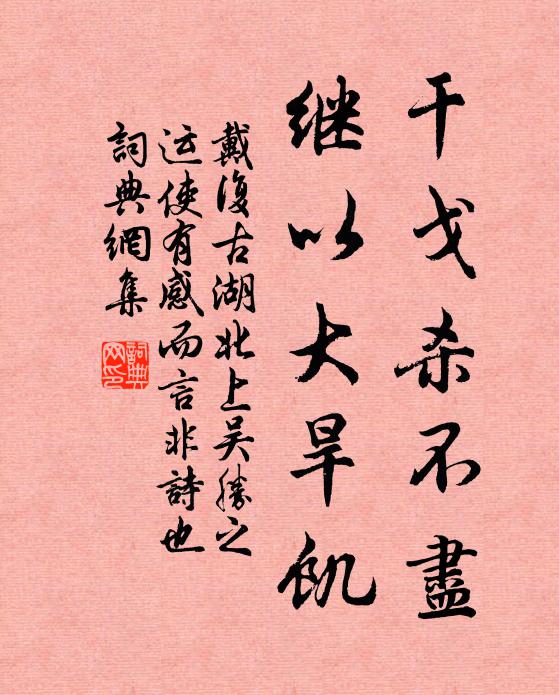 干戈杀不盡
继以大旱飢
戴復古湖北上吴勝之
运使有感而言非詩也
詞典網集
詞典
网印